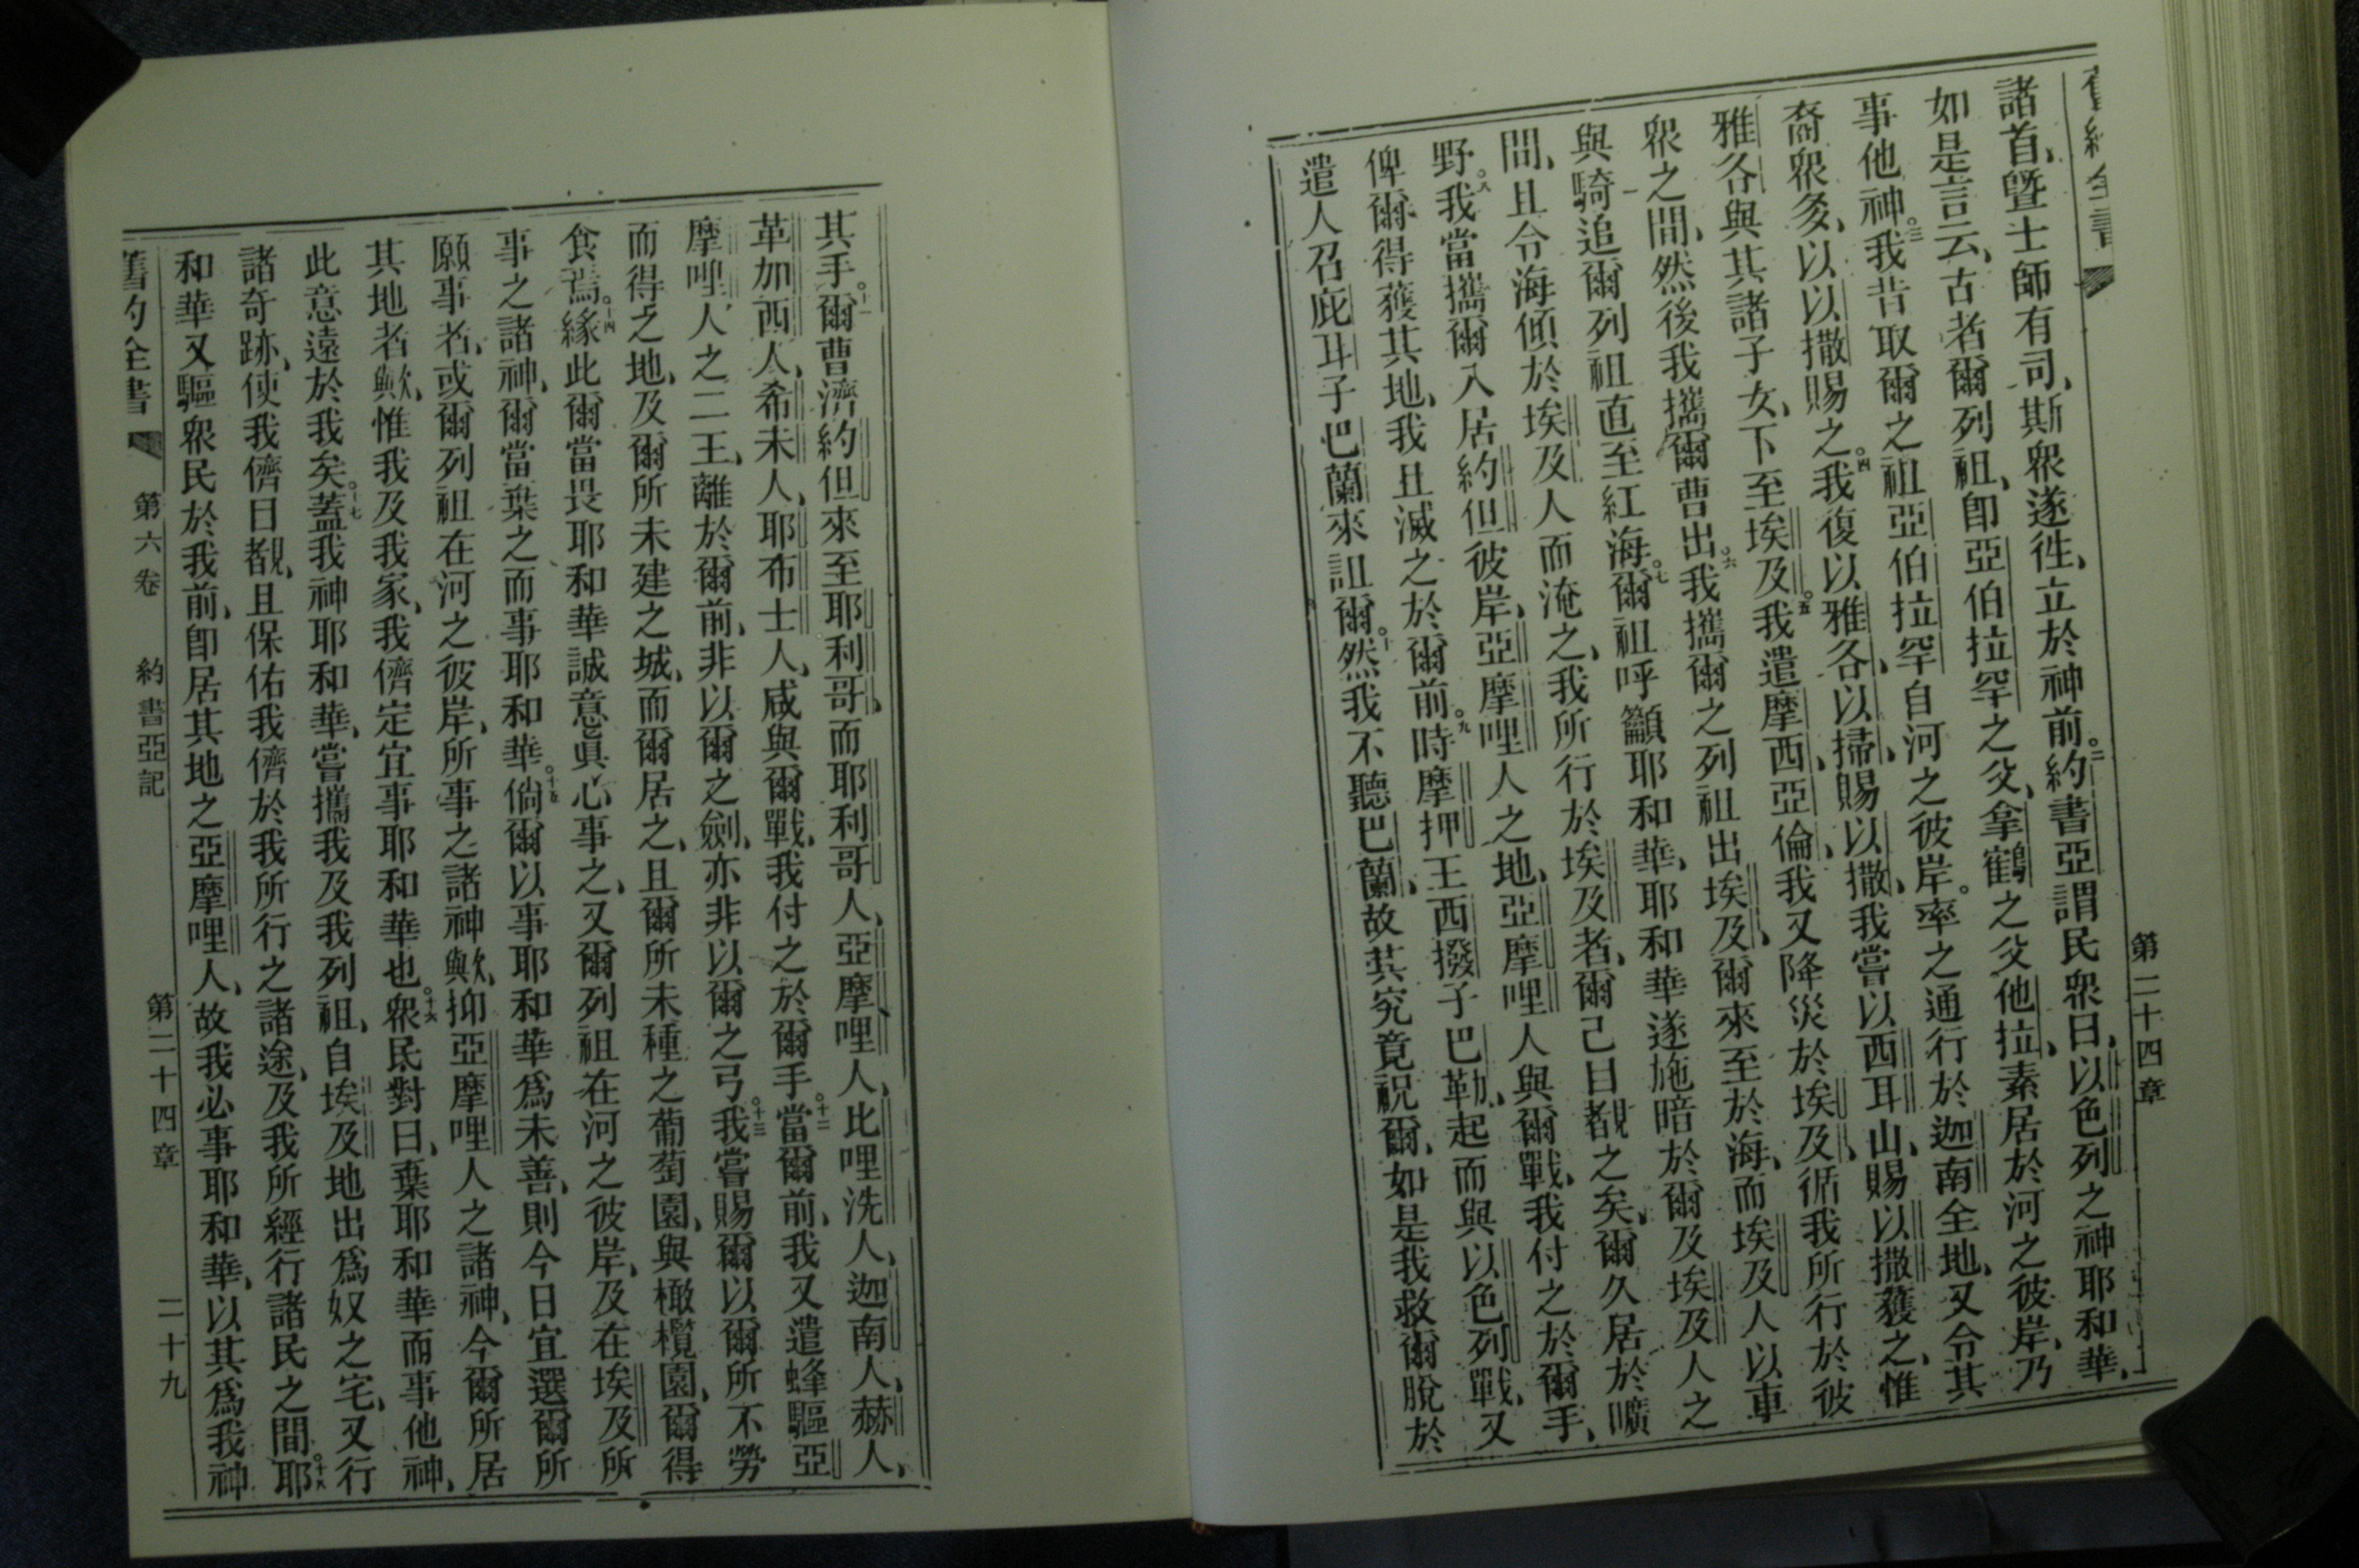 舊約全書
第二十四章
諸首、曁士師有司、斯衆遂徃、立於神前。二約書亞謂民衆曰、以色列之神耶和華、
如是言云、古者爾列祖、卽亞伯拉罕之父、拿鶴之父他拉、素居於河之彼岸、乃
事他神。三我昔取爾之祖亞伯拉罕自河之彼岸。率之通行於迦南全地、又令其
裔衆多、以以撒賜之。四我復以雅各、以掃、賜以撒、我嘗以西耳山、賜以撒獲之、惟
雅各與其諸子女、下至埃及。五我遣摩西、亞倫、我又降災於埃及、循我所行於彼
衆之間、然後我攜爾曹出。六我攜爾之列祖出埃及、爾來至於海、而埃及人以車
與騎追爾列祖直至紅海。七爾祖呼籲耶和華、耶和華遂施暗於爾及埃及人之
間、且令海傾於埃及人而淹之、我所行於埃及者、爾己目覩之矣、爾久居於曠
野。八我當攜爾入居約但彼岸、亞摩哩人之地、亞摩哩人與爾戰、我付之於爾手、
俾爾得獲其地、我且滅之於爾前。九時摩押王西撥子巴勒、起而與以色列戰、又
遣人召庇耳子巴蘭來詛爾。十然我不聽巴蘭、故其究竟祝爾、如是我救爾脫於
其手。十一爾曹濟約但來至耶利哥、而耶利哥人、亞摩哩人、比哩洗人、迦南人、赫人、
革加西人、希未人、耶布士人、咸與爾戰、我付之於爾手。十二當爾前、我又遣蜂驅亞
摩哩人之二王、離於爾前、非以爾之劍、亦非以爾之弓。十三我嘗賜爾以爾所不勞
而得之地、及爾所未建之城、而爾居之、且爾所未種之葡萄園、與橄欖園、爾得
食焉。十四緣此爾當畏耶和華誠意眞心事之、又爾列祖在河之彼岸、及在埃及所
事之諸神、爾當棄之而事耶和華。十五倘爾以事耶和華爲未善、則今日宜選爾所
願事者、或爾列祖在河之彼岸、所事之諸神歟、抑亞摩哩人之諸神、今爾所居
其地者歟、惟我及我家、我儕定宜事耶和華也。十六衆民對曰、棄耶和華而事他神、
此意遠於我矣。十七蓋我神耶和華、嘗攜我及我列祖、自埃及地出爲奴之宅、又行
諸奇跡、使我儕目覩、且保佑我儕於我所行之諸途、及我所經行諸民之間。十八耶
和華又驅衆民於我前、卽居其地之亞摩哩人、故我必事耶和華、以其爲我神
舊約全書 第六卷 約書亞記 第二十四章 二十九